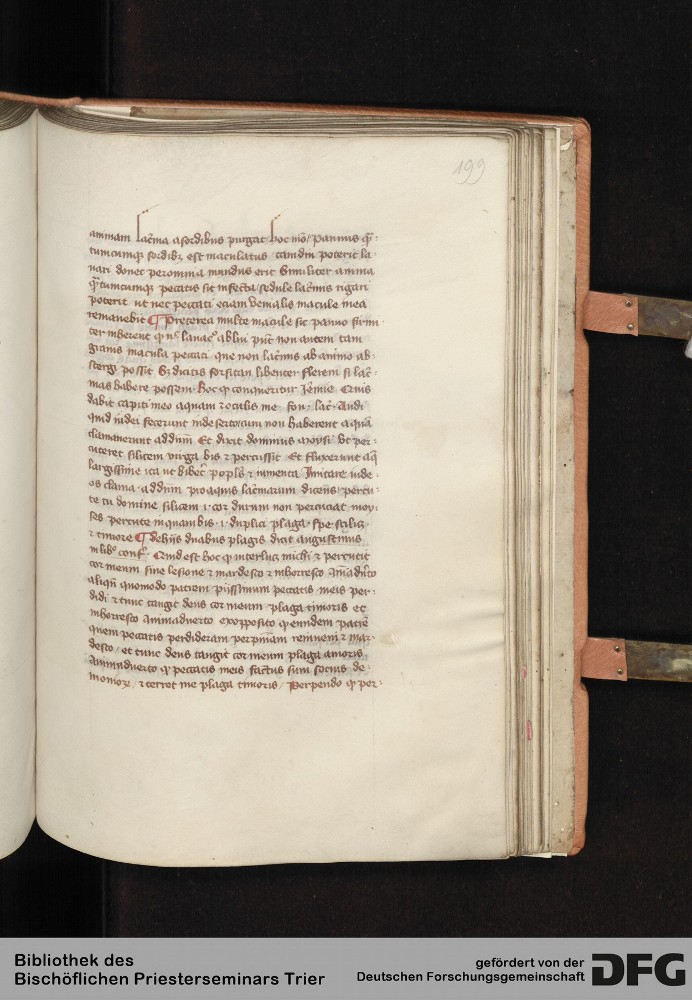 199
animam lac̄ma a sordibus purgat hoc mō / pannus qͣ-
tumcumqꝫ sordibꝫ est maculatus / tam diu poterit la-
uari donec per omnia mundus erit Similiter anima
qͣtumcumqꝫ peccatis sit infecta / sedule lac̄mis rigari
poterit ut nec peccati eciam venialis macule mea
remanebit ¶ Preterea multe macule sic panno firmi-
ter inherent
ablui pn̄t non autem tam
grauis macula peccati que non lac̄mis ab animo ab-
stergi possit Sꝫ dicitis forsitan libenter flerem si lac̄-
mas habere possem · hoc qͦ conqueritur Jeremie Quis
dabit capiti meo aquam ⁊ oculis me fon lac̄ Audi
quid iudei fecerunt in deserto cum non haberent aquā
clamauerunt ad dūm Et dixit dominus moysi vt per-
cuteret silicem virga bis ⁊ percussit Et fluxerunt aq̄
largissime ita ut biber̄ popl̄s ⁊ iumenta Imitare iude-
os clama ad dūm pro aquis lac̄marum dicens percu-
te tu domine silicem ·i· cor durum non percuciat moy-
ses percute inquam bis ·i· duplici plaga / spe scilic
⁊ timore ¶ de hijs duabus plagis dicit augustinus
in libͦ conf Quid est hoc qͦ interlucꝫ michi ⁊ percutit
cor meum sine lesione ⁊ inardesco ⁊ inhorresco
aliqn̄ quomodo patrem pijssimum peccatis meis per-
didi ⁊ tunc tangit deus cor meum plaga timoris et
inhorresco animaduerto ex opposito qͦ eundem patrē
quem peccatis perdideram per pn̄iam reinueni ⁊ inar-
desco / et tunc deus tangit cor meum plaga amoris
Animaduerto qͦ peccatis meis factus sum socius de-
moniorꝫ / ⁊ terret me plaga timoris / Perpendo qͦ per-
Bibliothek des
Bischöflichen Priesterseminars Trier
gefördert von der
Deutschen Forschungsgemeinschaft
DFG